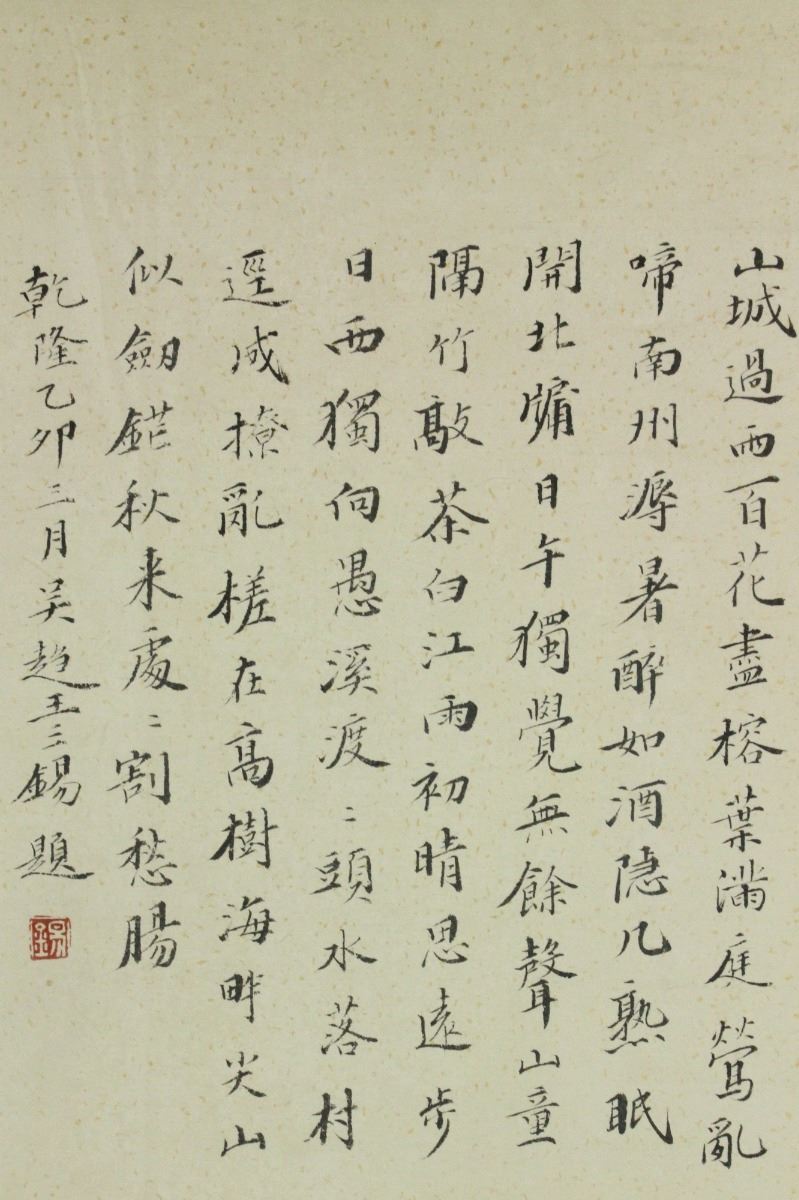 山城過雨百花盡榕葉滿庭鶯亂
啼南州溽暑醉如酒隱几熟眠
開北牖日午獨覺無餘聲山童
隔竹敲茶臼江雨初晴思遠步
日西獨向愚溪渡〻頭水落村
逕成撩亂槎在高樹海畔尖山
似劔鋩秋来處〻割愁腸
乾隆乙卯三月吴趋王三錫題